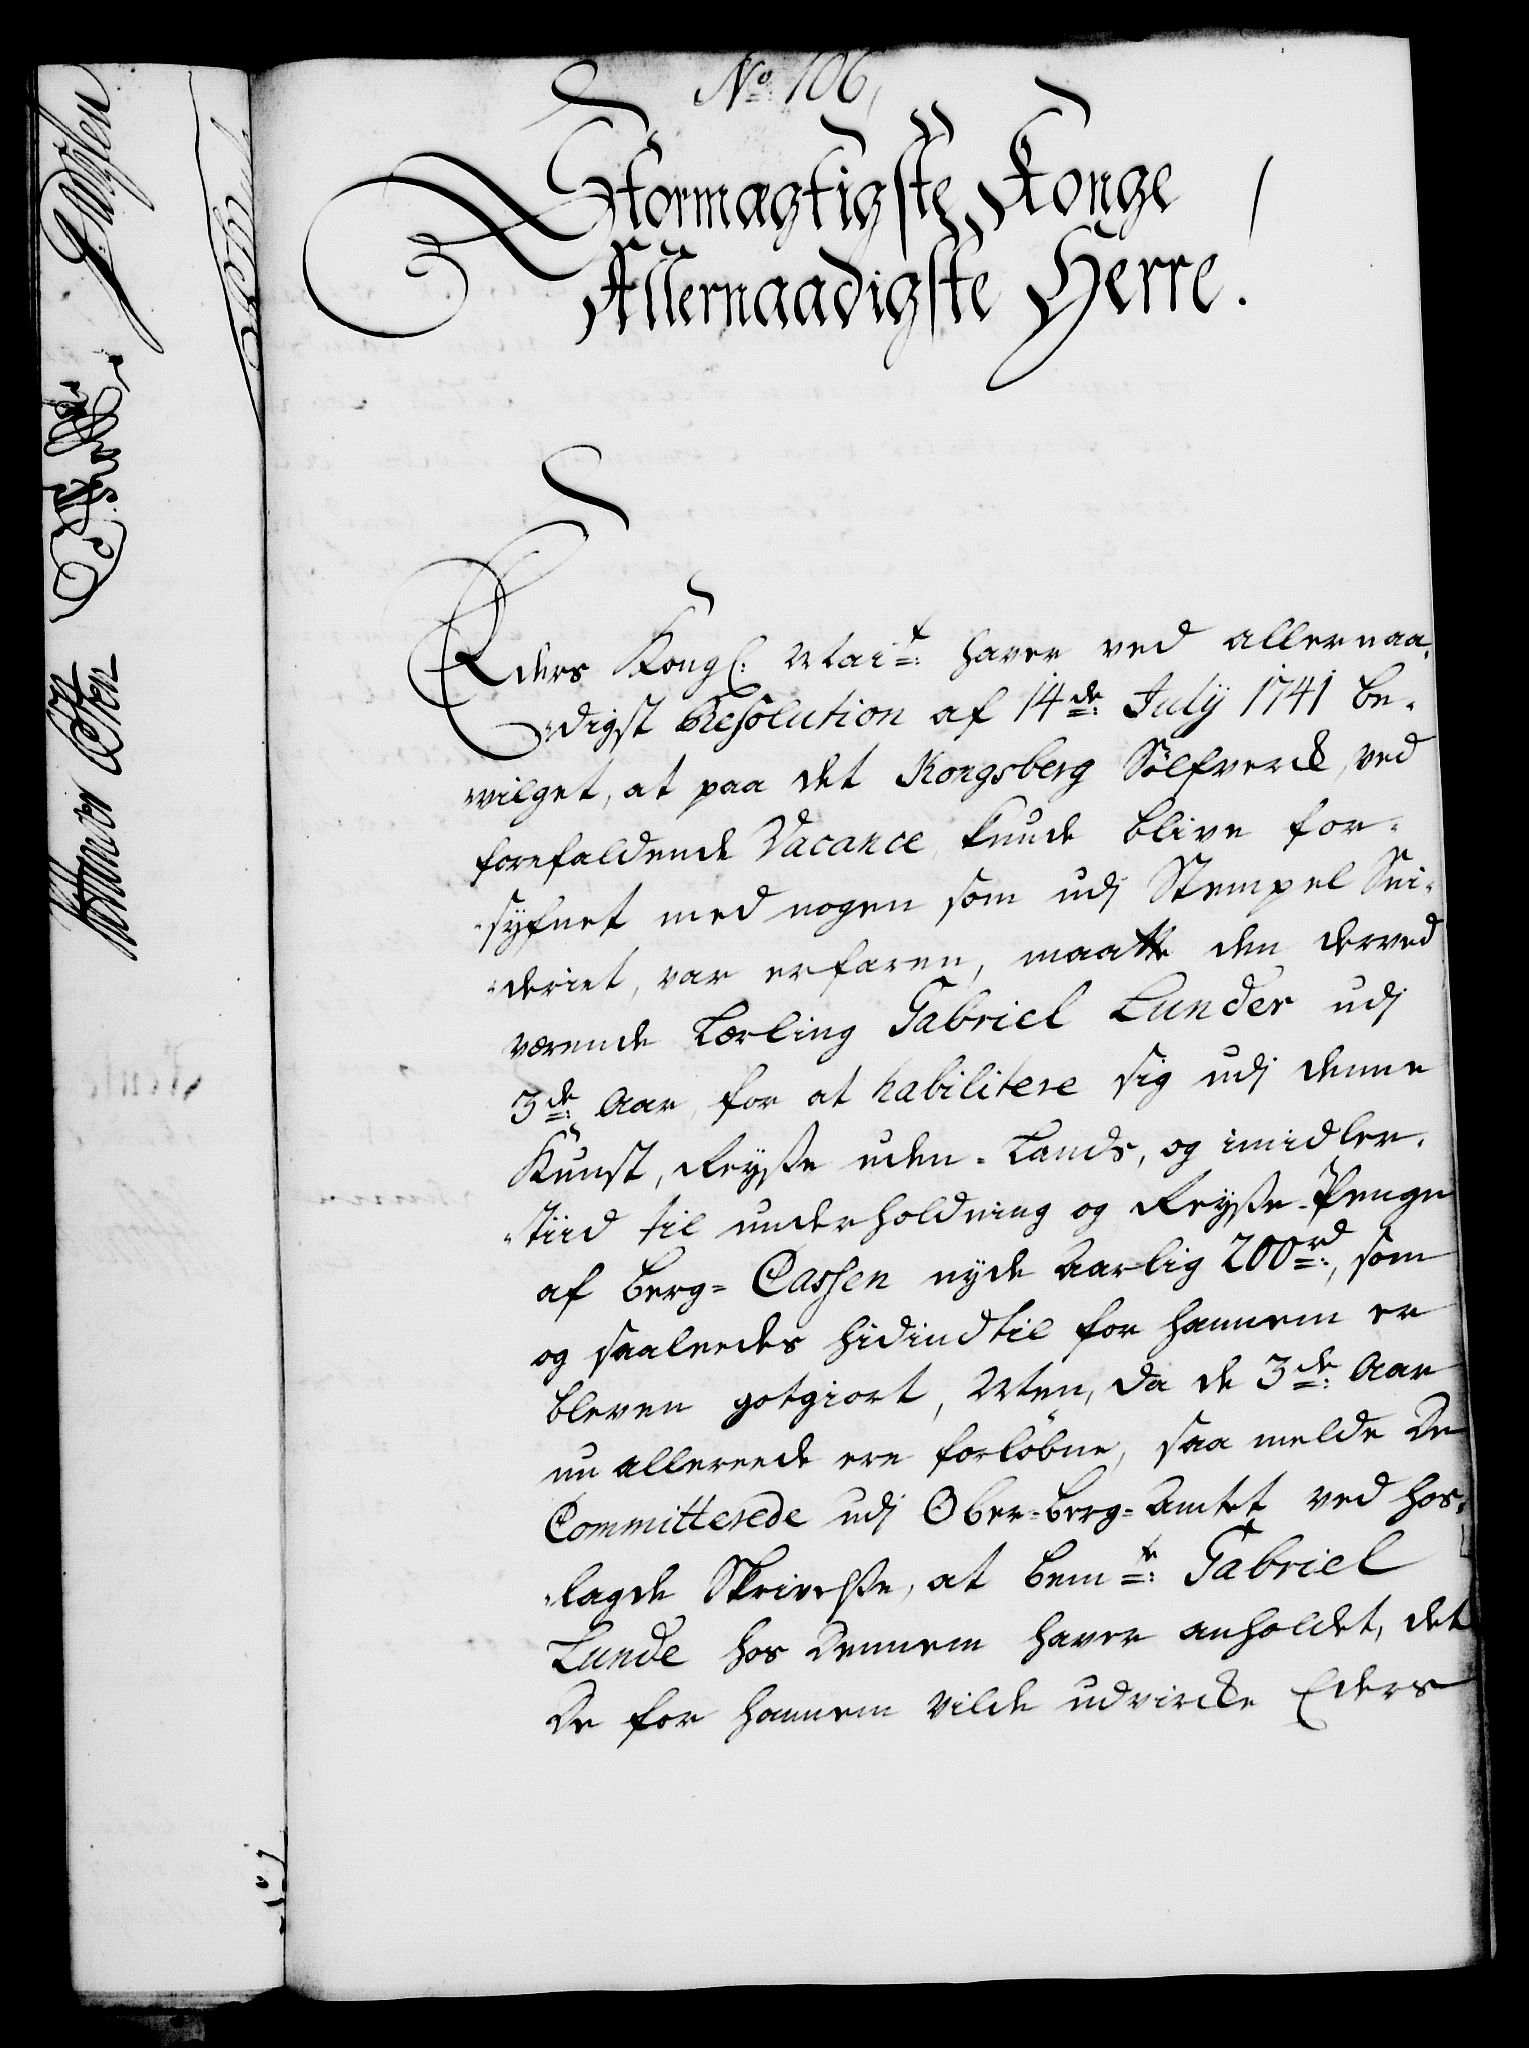 No. 106,
Stormægtigste Konge
Allernaadigste Herre!
Eders Kongl: Mait: haver ved allernaa-
digst Resolution af 14de July 1741 be-
vilget, at paa det Kongsberg Sölfverck, ved
forefaldende Vacance kunde blive for-
syfnet med nogen som udj Stempel Sni-
deriet, var erfaren, maatte den derved
værende Lærling Gabriel Lunder udj
3de Aar, for at habilitere sig udj denne
Kunst, Reyße uden-Lands, og imidler-
tiid til underholdning og Reyße-Penge
af Berg-Cassen nyde Aarlig 200rd:, som
og saaleedes hidindtil for hannem er
bleven gotgiort, Men, da de 3de Aar
nu allereede ere forløbne, saa melde De
Committerede udj Ober-Berg-Amtet ved hos-
lagde Skrivelße, at bemte: Gabriel
Lunde hos Dennem haver anholdet, det
De for hannem vilde udvircke Eders